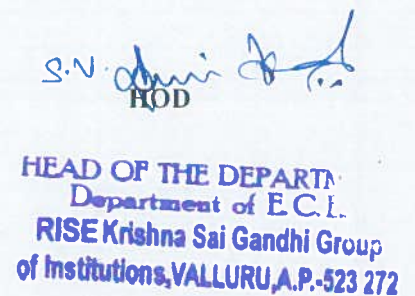 S.N.
HOD
HEAD OF THE DEPARTM
Department of E.C.E.
RISE Krishna Sai Gandhi Group
of Institutions, VALLURU, A.P.-523 272